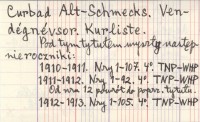 Curbad Alt-Schmecks. Ven-
dégnévsor. Kurliste.
Pod tym tytułem wyszły następ.
nie roczniki:
1910-1911. Nry 1-107. 4°. TNP-WHP
1911-1912. Nry 1-92. 4°. TNP-WHP
Od nru 12 powrót do poprz. tytułu.
1912-1913. Nry 1-105. 4°. TNP-WHP